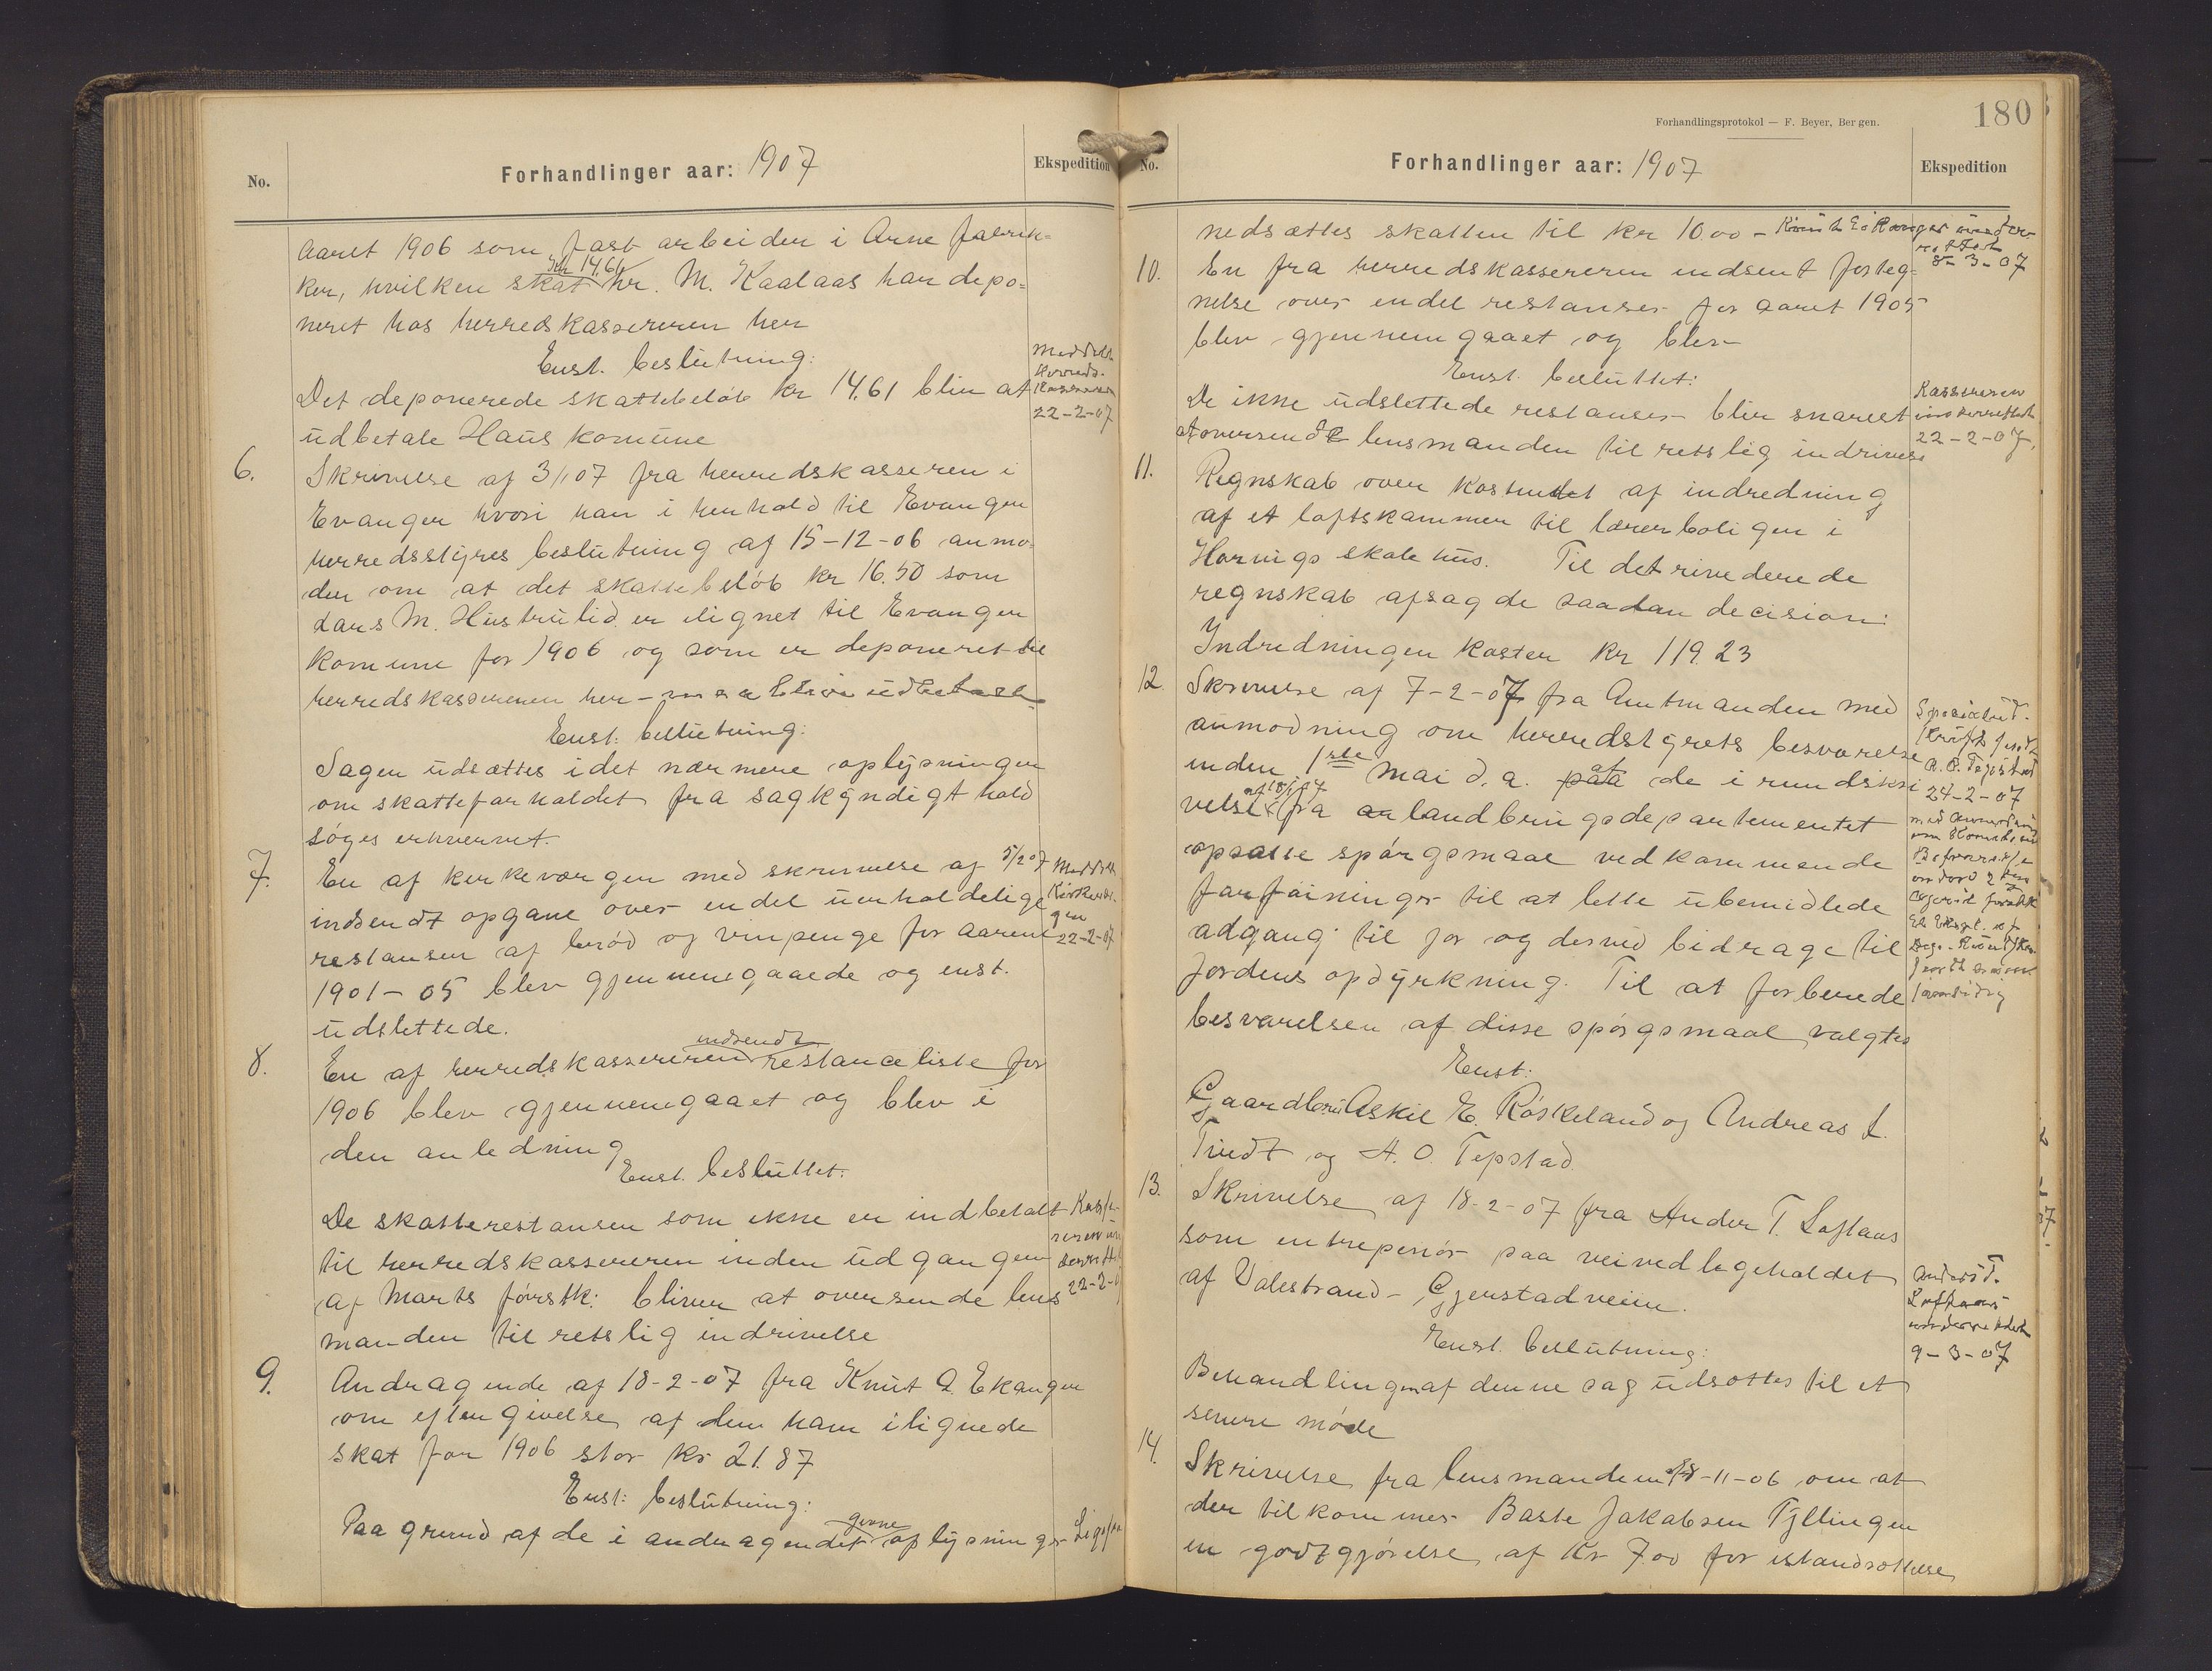 No.
Forhandlinger aar: 1907
Ekspedition
aaret 1906 som fast arbeider i Arne fabrik-
kr 14.61
ker, hvilken skat hr. M. Kaalaas har depo-
neret hos herredskassereren her
Enst. beslutning:
Det deponerede skattebeløb kr 14.61 blir at
udbetale Haus komune
Meddelt
herreds-
kasseren
22-2-07
6.
Skrivelse af 3/1 07 fra herredskasseren i
Evanger hvori han i henhold til Evanger
herredsstyres beslutning af 15-12-06 anmo-
der om at det skattebeløb kr 16.50 som
Lars M. Hustrulid er ilignet til Evanger
komune for 1906 og som er deponeret til
herredskassereren her - maa blive udbetalt
Enst. beslutning:
Sagen udsættes idet nærmere oplysninger
om skatteforholdet fra sagkyndigt hold
søges erhvervet.
7.
En af kirkeværgen med skrivelse af 5/2 07
indsendt opgave over endel uerholdelige
restanser af brød og vinpenge for aarene
1901-05 blev gjennemgaaede og enst.
udslettede.
Meddelt
Kirkevær-
gen
22-2-07
8.
indsendt
En af herredskassereren restanceliste for
1906 blev gjennemgaaet og blev i
den anledning
Enst. besluttet:
De skatterestanser som ikke er indbetalt
til herredskassereren inden udgangen
af Marts førstk: bliver at oversende lens
manden til retslig indrivelse
Kasse-
reren un
derrettet
22-2-0
9.
Andragende af 18-2-07 fra Knut A Ekanger
om eftergivelse af den ham ilignede
skat for 1906 stor kr 21.87
Enst: beslutning:
givne
Paa grund af de i andragendet oplysninger
Forhandlingsprotokol — F. Beyer, Bergen.
180
No.
Forhandlinger aar: 1907
Ekspedition
nedsættes skatten til kr 10.00 -
8-3-07
10.
En fra herredskassereren indsent forteg-
nelse over endel restanser for aaret 1905
blev gjennemgaaet og blev
Enst. besluttet:
De ikke udslettede restanser blir snarest
at oversende lensmanden til retslig indrivelse
Kassereren
underrettet
22-2-07.
11.
Regnskab over kostnadet af indredning
af et loftskammer til lærerboligen i
Hornings skolehus. Til det rividerede
regnskab afsagde saadan decision:
Indredningen koster kr 119.23
12.
Skrivelse af 7-2-07 fra Amtmanden med
anmodning om herredstyrets besvarelse
inden 1ste mai d. a. af de i rundskri
velse af 18/1 07 fra landbrugsdepartementet
opsatte spørgsmaal vedkommende
forføininger til at lette ubemidlede
adgang til jor og derved bidrage til
jordens opdyrkning. Til at forberede
besvarelsen af disse spørgsmaal valgtes
Enst:
Gaardbru Askil E. Røskeland og Andreas L.
Tvedt og A. O. Tepstad.
A. O. Tepstad
24-2-07
13.
Skrivelse af 18-2-07 fra Ander T. Loftaas
som entrepenør paa veivedlegeholdet
af Valestrand - Gjerstadveien.
Enst. beslutning:
Behandlingen af denne sag udsættes til et
senere møde
Anders T.
Loftaas
underrettet
9-3-07
14.
Skrivelse fra lensmanden af 18-11-06 om at
der tilkommer Baste Jakobsen Tyllingen
en godtgjørelse af kr 7.00 for istandsættelse